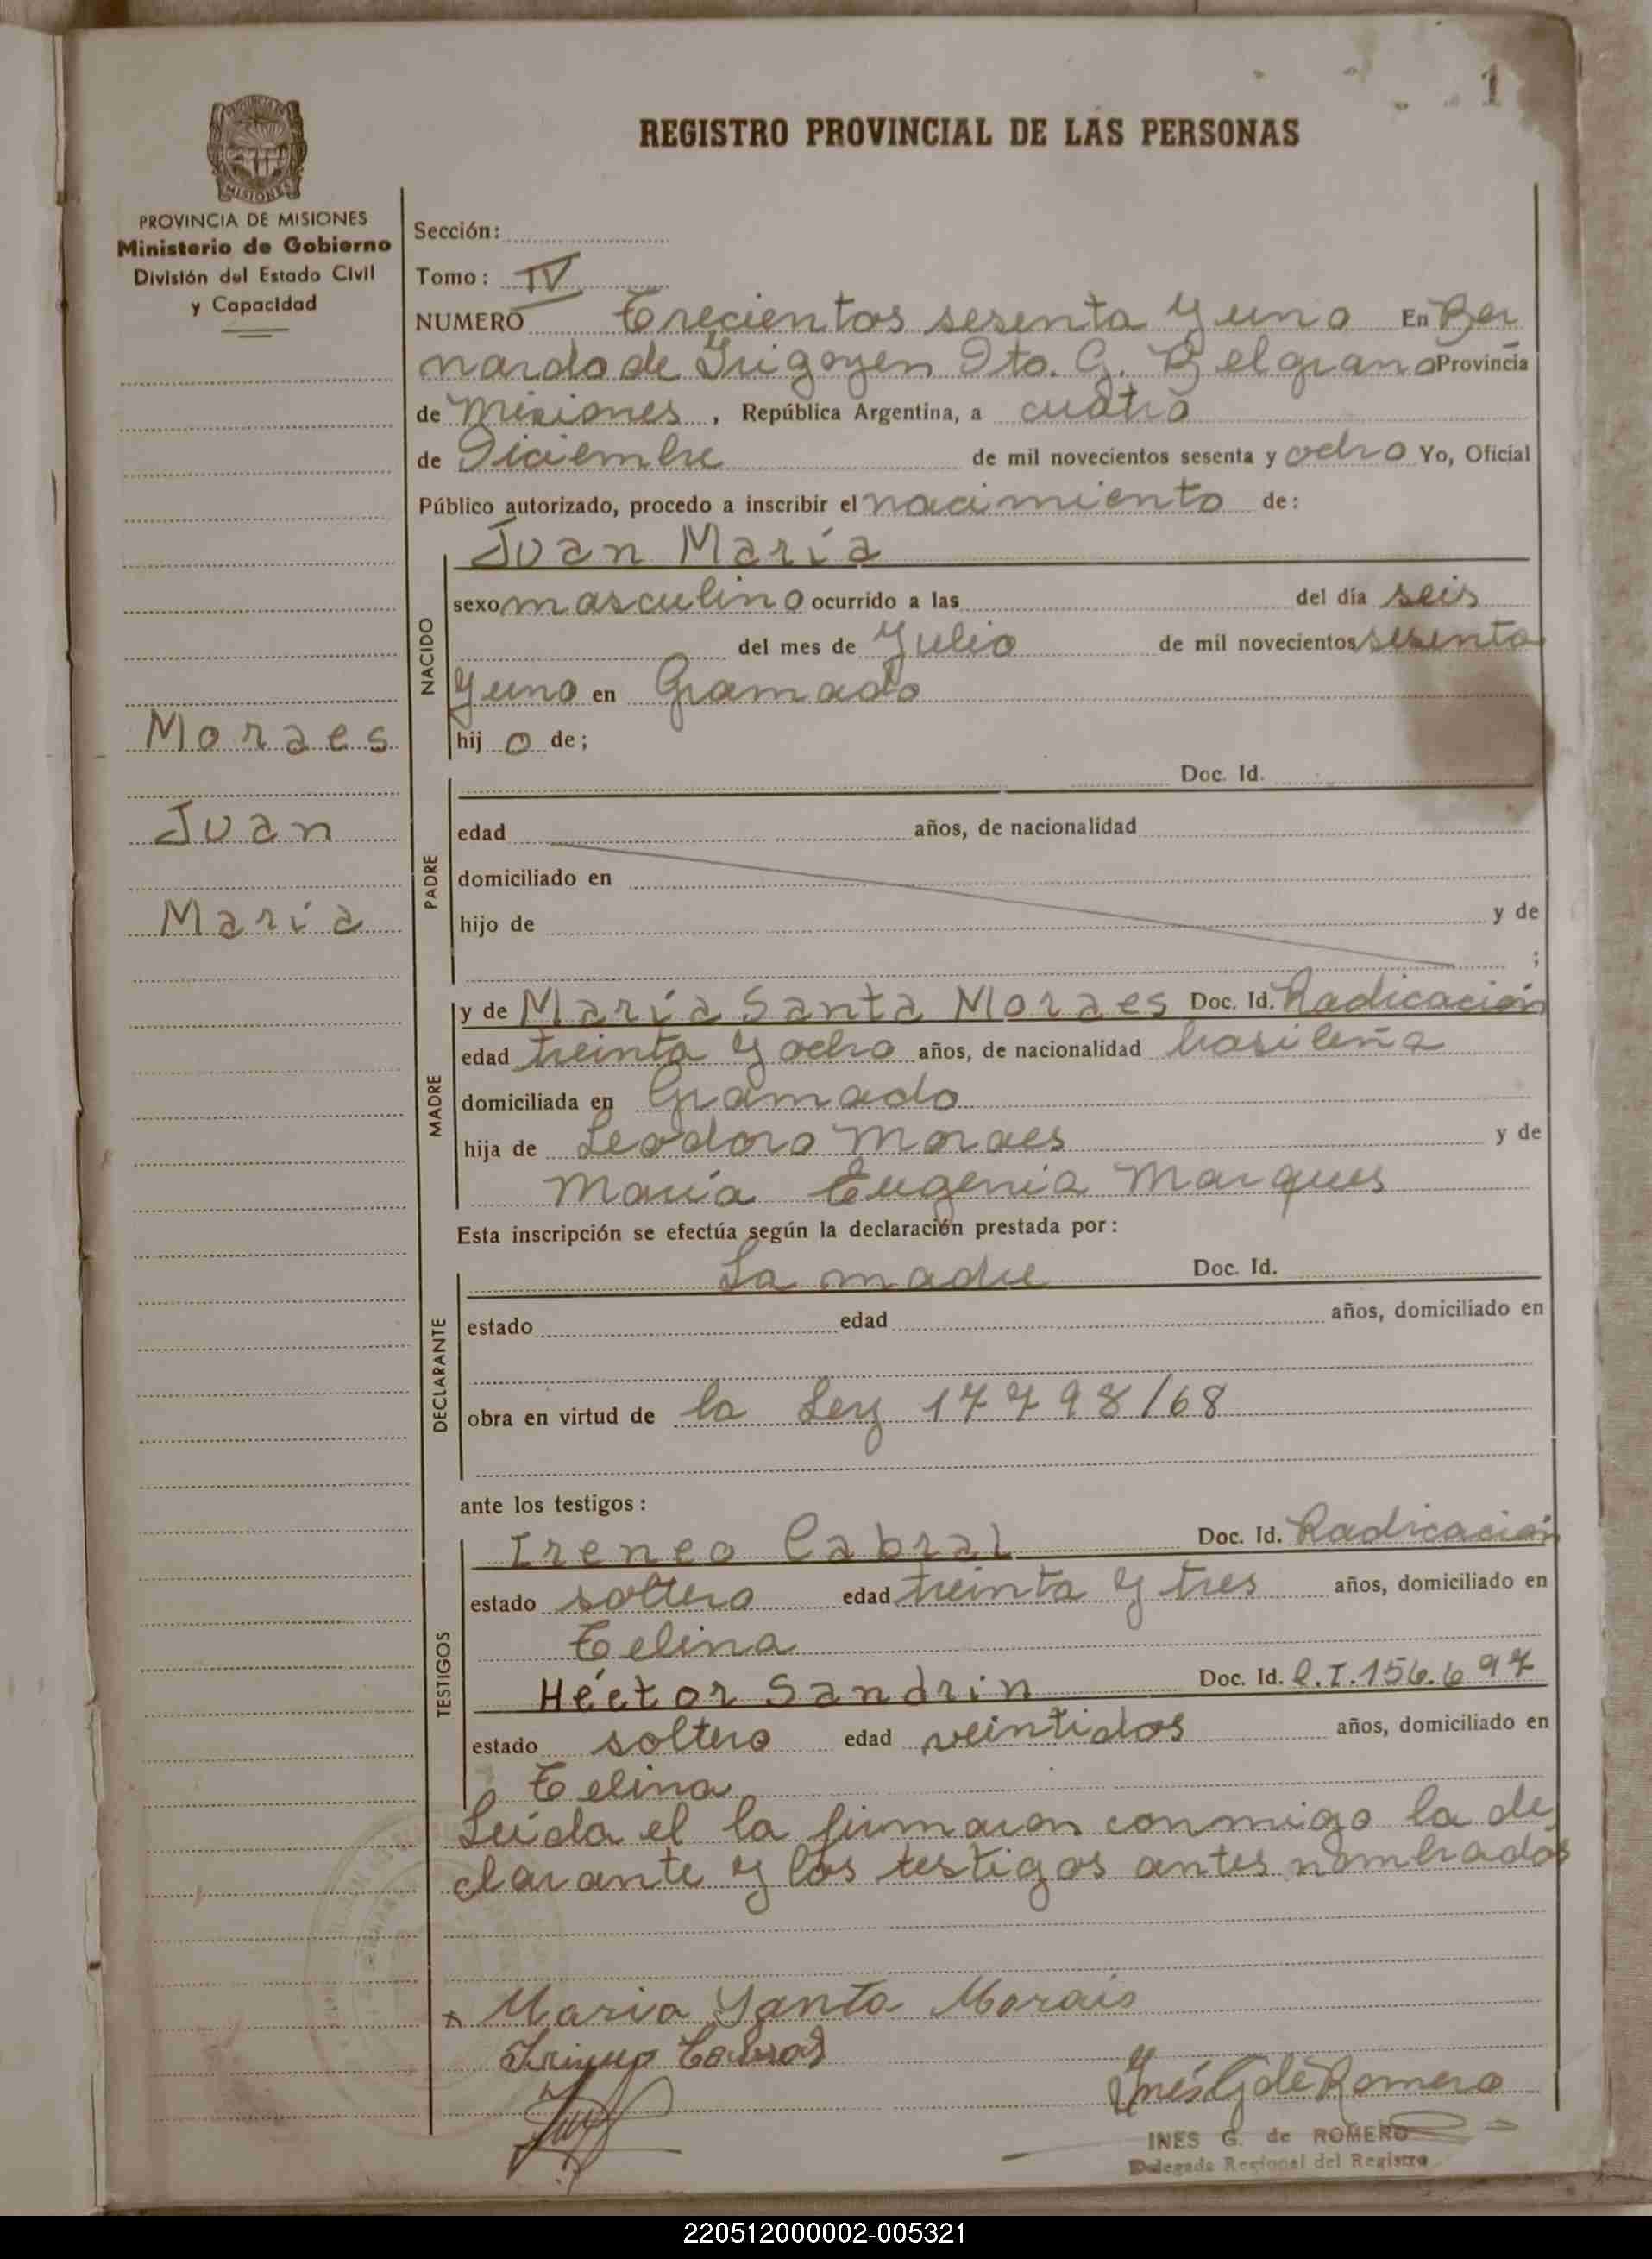 1
REGISTRO PROVINCIAL DE LAS PERSONAS
PROVINCIA DE MISIONES
Ministerio de Gobierno
División del Estado Civil
y Capacidad
Moraes
Juan
María
Sección:
Tomo: IV
NUMERO Trecientos sesenta y uno En Ber
nardo de Irigoyen Dto. G. Belgrano Provincia
de Misiones, República Argentina, a cuatro
de Diciembre de mil novecientos sesenta y ocho Yo, Oficial
Público autorizado, procedo a inscribir el nacimiento de:
Juan María
NACIDO
sexo masculino ocurrido a las del día seis
del mes de Julio de mil novecientos sesenta
y uno en Gramado
hijo de;
PADRE
Doc. Id.
edad años, de nacionalidad
domiciliado en
hijo de y de
;
MADRE
y de María Santa Moraes Doc. Id. Radicación
edad treinta y ocho años, de nacionalidad brasileña
domiciliada en Gramado
hija de Leodoro Moraes y de
María Eugenia Marques
Esta inscripción se efectúa según la declaración prestada por:
DECLARANTE
La madre Doc. Id.
estado edad años, domiciliado en
obra en virtud de la Ley 17798/68
ante los testigos:
TESTIGOS
Ireneo Cabral Doc. Id. Radicación
estado soltero edad treinta y tres años, domiciliado en
Telina
Héctor Sandrin Doc. Id. C.I.156.697
estado soltero edad veintidos años, domiciliado en
Telina
Leída el la firmaron conmigo la de
clarante y los testigos antes nombrados
x Maria Santa Morais
Inés G de Romero
INES G. de ROMERO
Delegada Regional del Registro
220512000002-005321